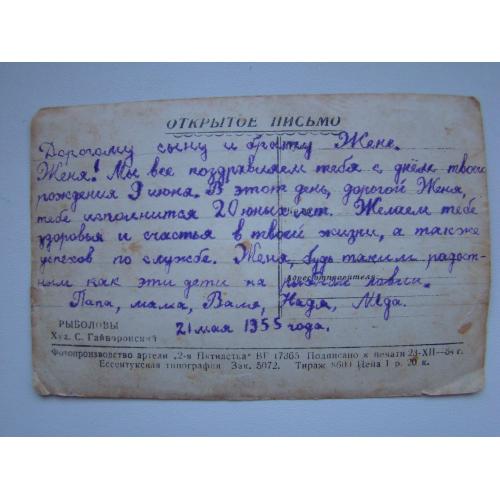 ОТКРЫТОЕ ПИСЬМО
Дорогому сыну и брату Жене.
Женя! Мы все поздравляем тебя с днём твоего
рождения 9 июня. В этот день, дорогой Женя,
тебе исполнится 20 юных лет. Желаем тебе
здоровья и счастья в твоей жизни, а также
успехов по службе. Женя, будь таким радост-
ным как эти дети на рыбной ловли.
Папа, мама, Валя, Надя, Лида.
21 мая 1955 года.
РЫБОЛОВЫ
Худ. С. Гайворонский
Фотопроизводство артели „2-я Пятилетка" ВГ 17365 Подписано к печати 23-XII—54 г.
Ессентукская типография Зак. 5072. Тираж 8600 Цена 1 р. 20 к.